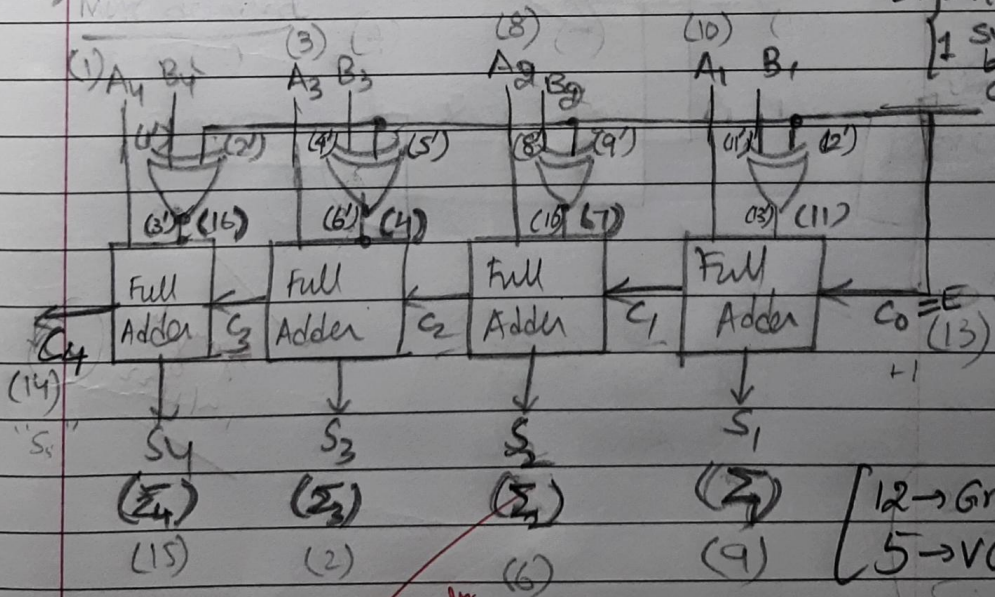 (3)
(8)
(10)
[1
(1) A4 B4
A3 B3
A2 B2
A1 B1
(1') (2')
(4') (5')
(8') (9')
(11') (12')
(3') (16)
(6') (4)
(10') (7)
(13') (11)
Full Adder
C3
Full Adder
C2
Full Adder
C1
Full Adder
C0 = E
(13)
+1
C4
(14)
S4
S3
S2
S1
(Σ4)
(Σ3)
(Σ2)
(Σ1)
(15)
(2)
(6)
(9)
[12→Gr
5→VC